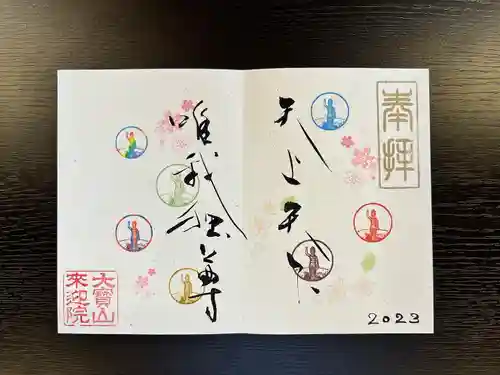 奉拝
天上天下
唯我独尊
2023
大寶山
来迎院